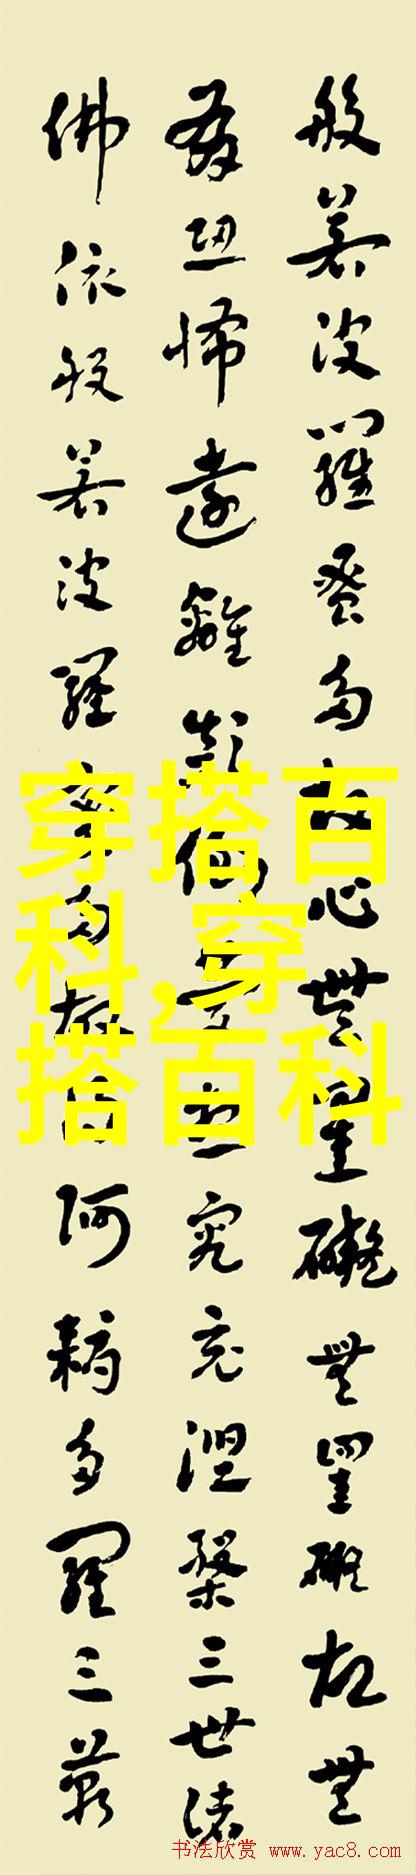 般若波羅蜜多故心無罣礙無罣礙故無
有恐怖遠離顛倒夢想究竟涅槃三世諸
佛依般若波羅蜜多故得阿耨多羅三藐
穿搭百
科,穿
搭百科
书法欣赏 www.yac8.com